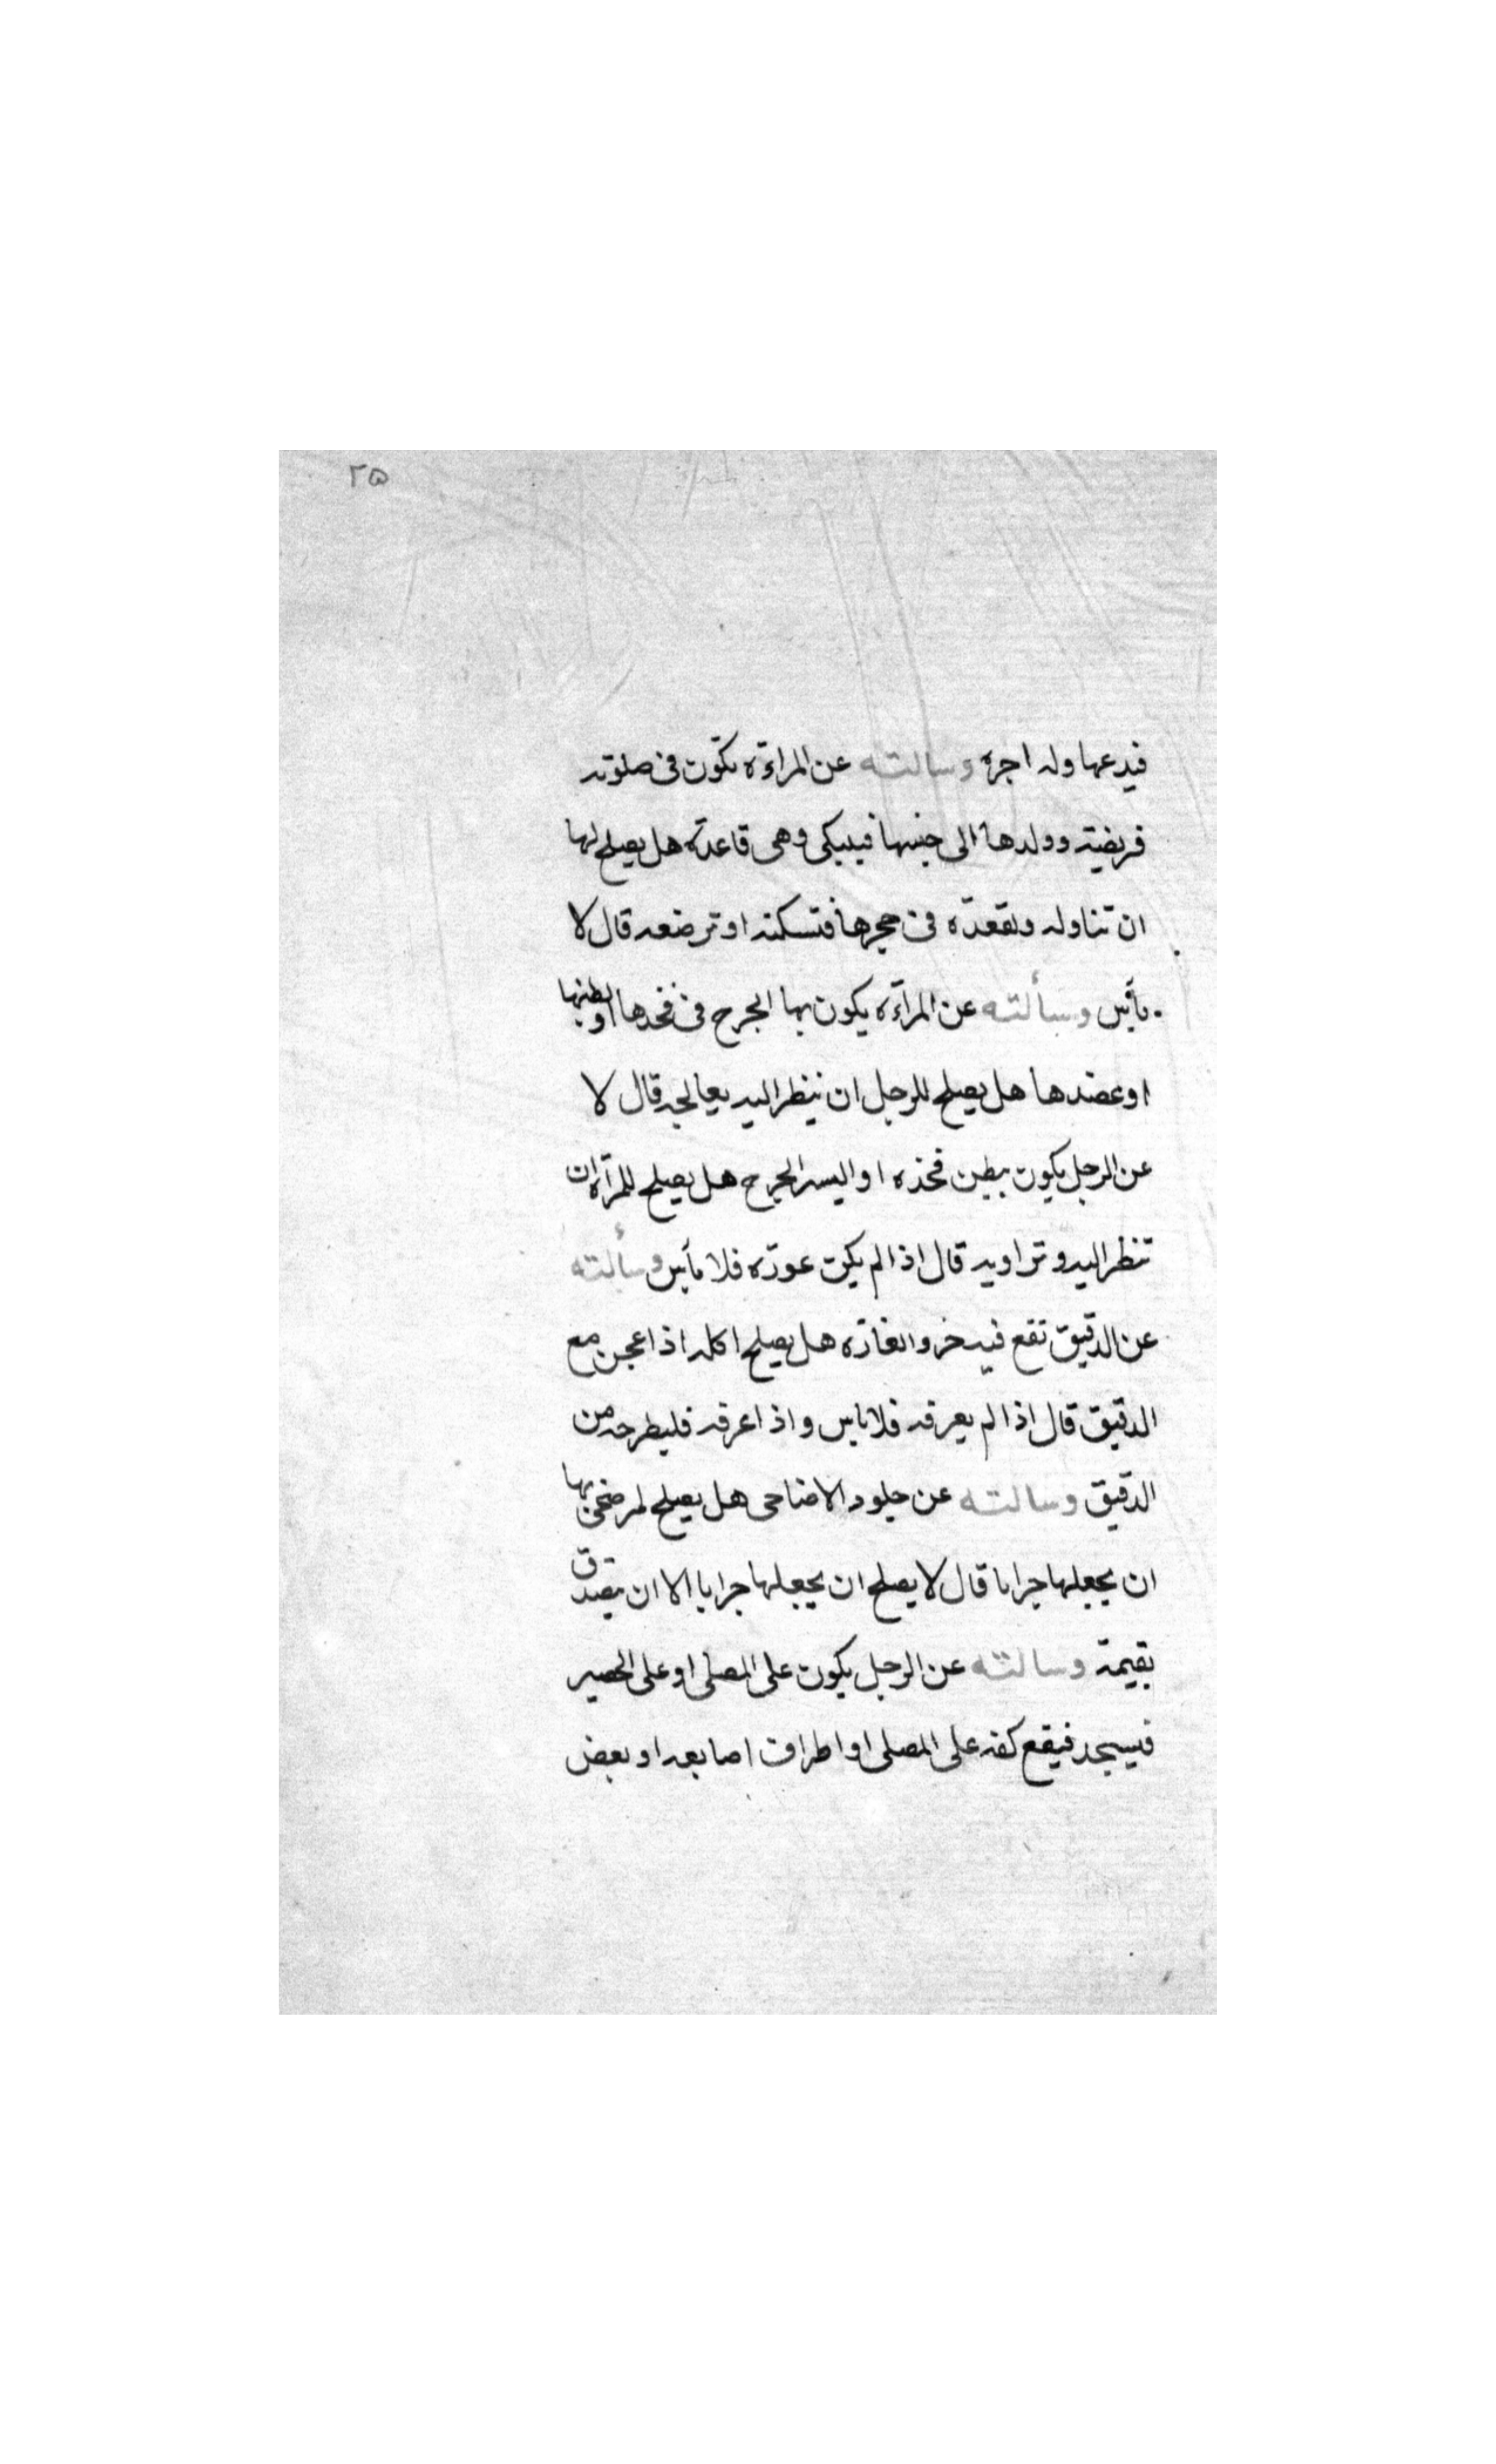 ٢٥
فيدعها وله اجره وسالته عن المراءة تكون فى صلوته
فريضة وولدها الى جنبها فيبكى وهى قاعدة هل يصلح لها
ان تناوله وتقعده فى حجرها فتسكته او ترضعه قال لا
بأس وسألته عن المرآءة يكون بها الجرح فى فخذها او بطنها
او عضدها هل يصلح للرجل ان ينظر اليه يعالجه قال لا
عن الرجل يكون ببطن فخذه او اليسه الجرح هل يصلح للمرآة ان
تنظر اليه وتداويه قال اذا لم يكن عورة فلا بأس وسألته
عن الدقيق تقع فيه خرو الفارة هل يصلح اكله اذا عجن مع
الدقيق قال اذا لم يعرفه فلا باس واذا عرفه فليطرحه من
الدقيق وسالته عن جلود الاضاحى هل يصلح لمن ضحى بها
ان يجعلها جرابا قال لا يصلح ان يجعلها جرابا الا ان يتصدق
بقيمة وسالته عن الرجل يكون على المصلى او على الحصير
فيسجد فيقع كفه على المصلى او اطراف اصابعه او بعض